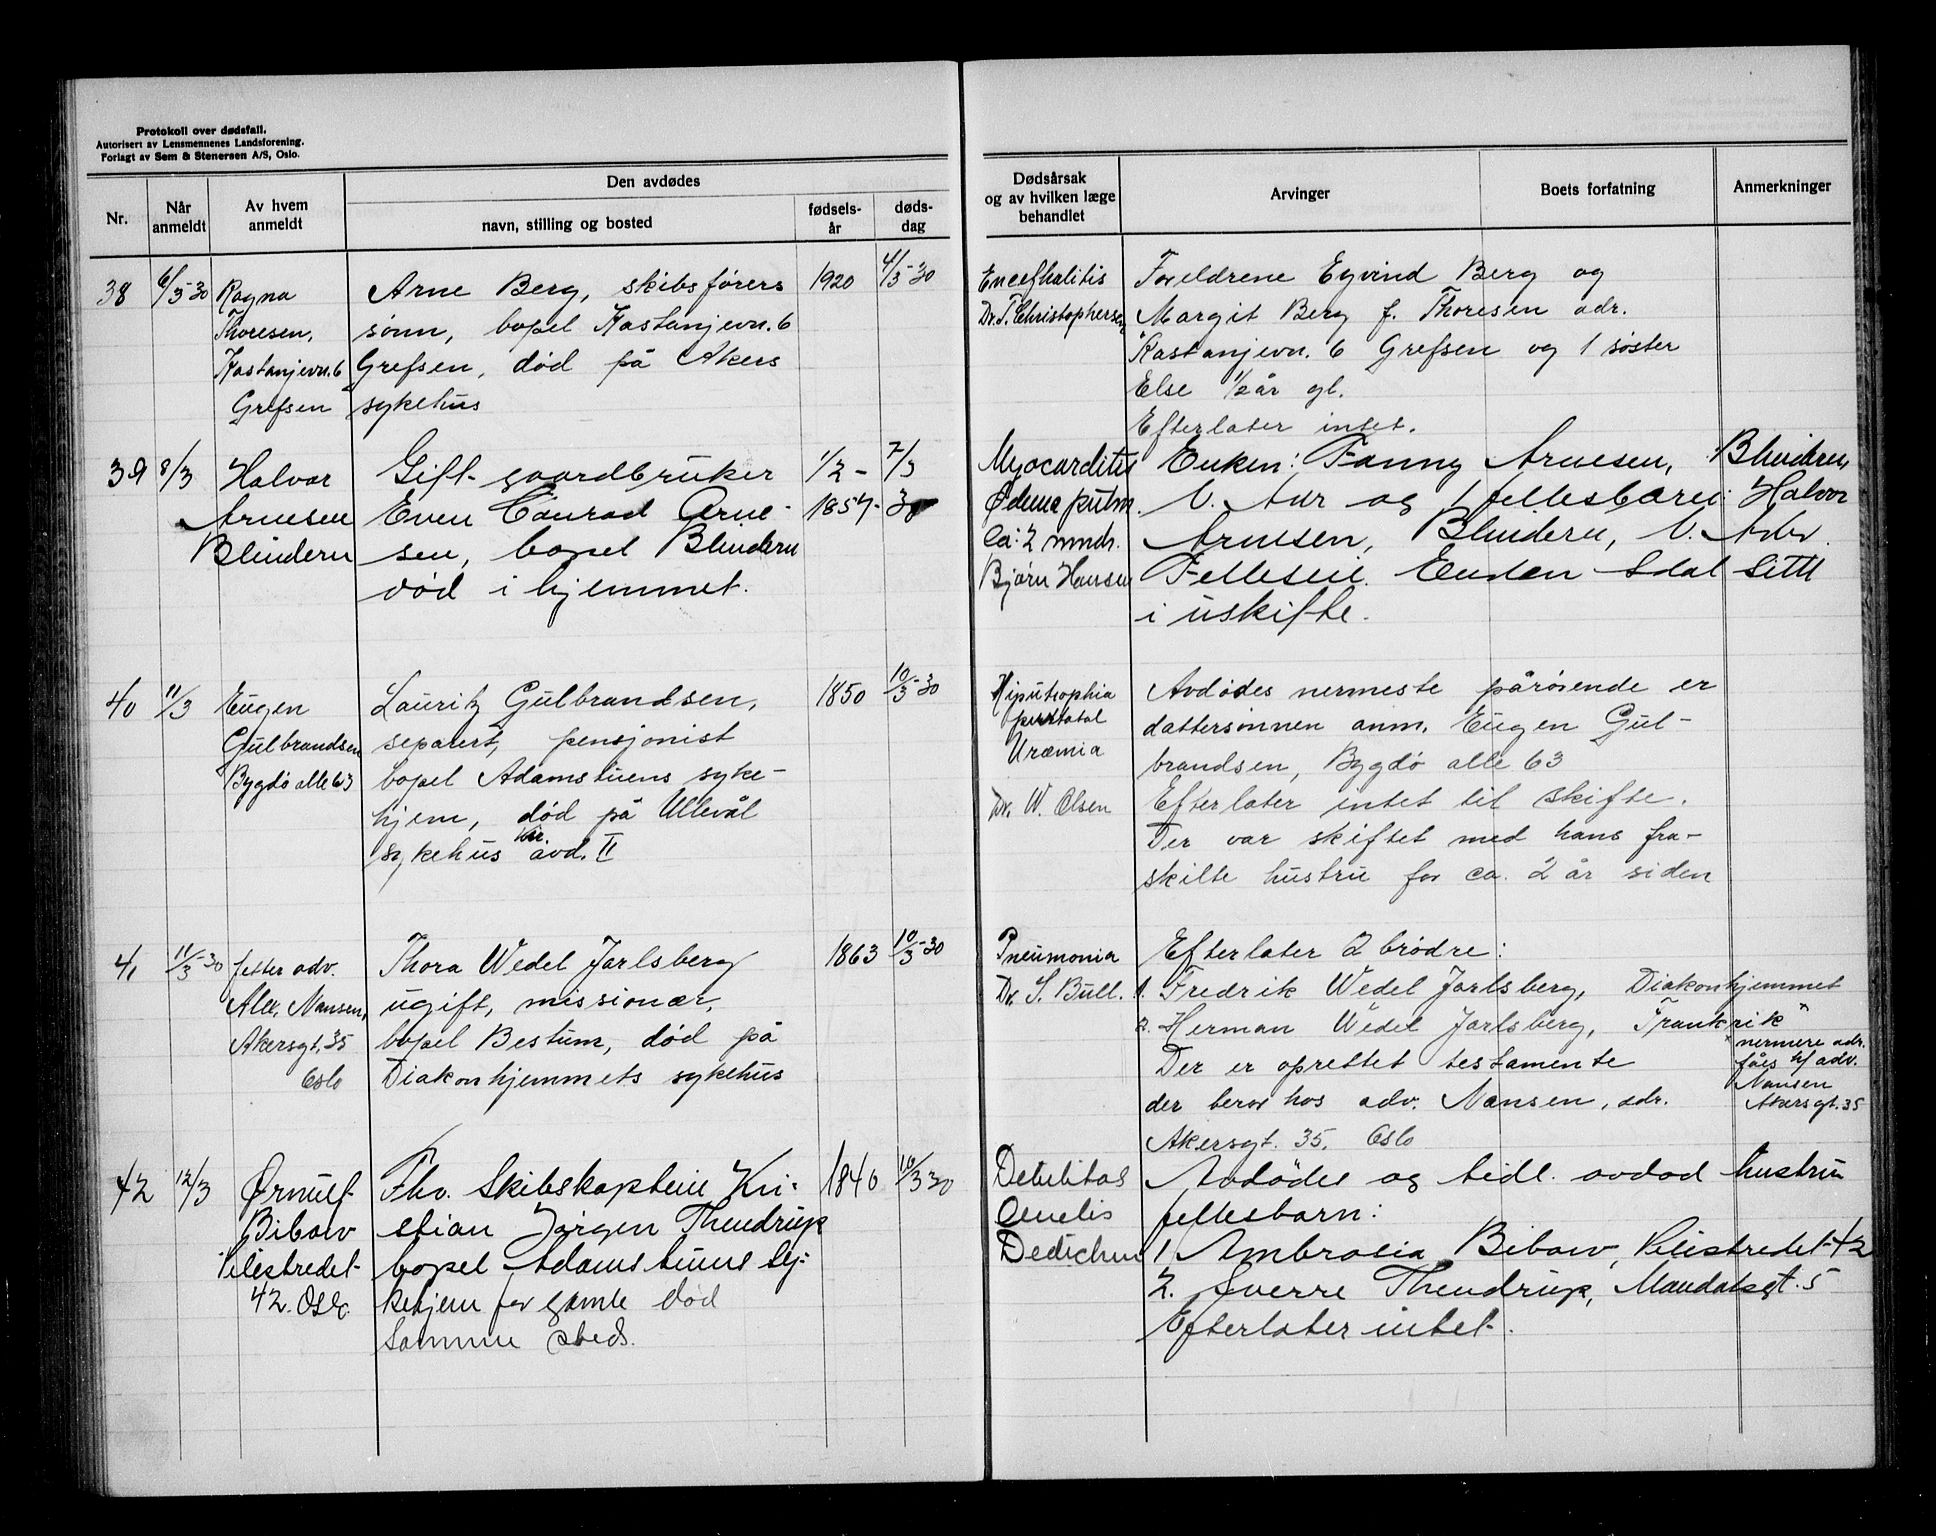 Protokoll over dødsfall.
Autorisert av Lensmennenes Landsforening.
Forlagt av Sem & Stenersen A/S, Oslo.
Nr.
Når anmeldt
Av hvem anmeldt
Den avdødes
navn, stilling og bosted
fødsels-år
døds-dag
Dødsårsak
og av hvilken læge
behandlet
Arvinger
Boets forfatning
Anmerkninger
38
6/3-30
Ragna
Thoresen,
Kastanjevn. 6
Grefsen
Arne Berg, skibsførers
sønn, bopel Kastanjevn. 6
Grefsen, død på Akers
sykehus
1920
4/3-30
Encefhalitis
Dr. T. Christophersen
Foreldrene Eyvind Berg og
Margit Berg f. Thoresen adr.
Kastanjevn. 6 Grefsen og 1 søster
Else 1/2 år gl.
Efterlater intet.
39
8/3
Halvor
Arnesen
Blindern
Gift gaardbruker
Even Conrad Arne-
sen, bopel Blindern
død i hjemmet.
1/2-
1857-
7/3
30
Myocarditis
Ødeme pulm.
Ca: 2 mndr.
Bjørn Hansen
Enken: Fanny Arnesen, Blindern,
V. Aker og 1 fellesbarn: Halvor
Arnesen, Blindern, V. Aker.
Felleseie. Enken skal sitte
i uskifte.
40
11/3
Eugen
Gulbrandsen
Bygdø alle 63
Lauritz Gulbrandsen,
separert, pensjonist
bopel Adamstuens syke-
hjem, død på Ullevål
sykehus kir. avd. II
1850
10/3-30
Uræmia
Dr. W. Olsen
Avdødes nermeste pårørende er
dattersønnen anm. Eugen Gul-
brandsen, Bygdø alle 63
Efterlater intet til skifte.
Der var skiftet med hans fra-
skilte hustru for ca. 2 år siden
41
11/3-30
fetter adv.
Alex. Nansen,
Akersgt. 35
Oslo
Thora Wedel Jarlsberg
ugift, missionær,
bopel Bestum, død på
Diakonhjemmets sykehus
1863
10/3-30
Pneumonia
Dr. S. Bull.
Efterlater 2 brødre:
1. Fredrik Wedel Jarlsberg, Diakonhjemmet
2. Herman Wedel Jarlsberg, Frankrik x
Der er oprettet testamente
der beror hos adv. Nansen, adr.
Akersgt. 35, Oslo
x nermere adr.
fåes h/ adv.
Nansen
Akersgt. 35
42
12/3
Ørnulf
Bibow
Pilestredet
42. Oslo.
Fhv. Skibskaptein Kri-
stian Jørgen Thendrup
bopel Adamstuens Sy-
kehjem for gamle død
samme steds.
1840
10/3 30
Debilitas
Senilis
Dedichen
Avdødes og tidl. avdød hustru
fellesbarn:
1 Ambrosia Bibow, Pilestredet 42
2. Sverre Thendrup, Mandalsgt. 5
Efterlater intet.